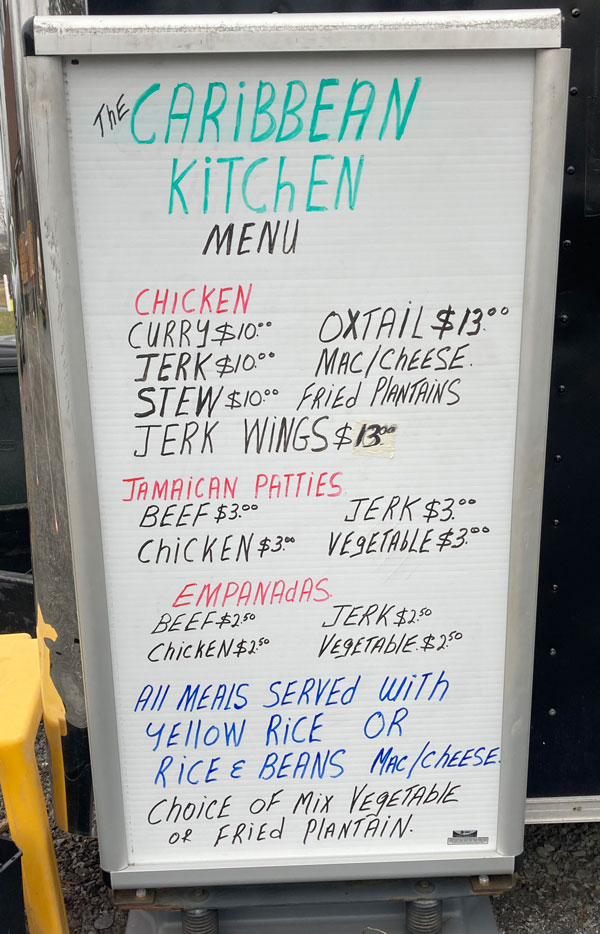 The CARIBBEAN
KITChEN
MENU
CHICKEN
CURRY $10.00 OXTAIL $13.00
JERK $10.00 MAC/ChEESE.
STEW $10.00 FRIEd PlANTAINS
JERK WINGS $13.00
JAMAICAN PATTIES.
BEEF $3.00 JERK $3.00
ChICKEN $3.00 VEgETAblE $3.00
EMPANAdAS.
BEEF $2.50 JERK $2.50
ChicKEN $2.50 VEgETAblE. $2.50
All MEAlS SERVEd WiTh
YEllOW RICE OR
RICE & BEANS MAC/ChEESE.
ChOICE OF MIX VEgETAblE
OR FRIEd PlANTAIN.